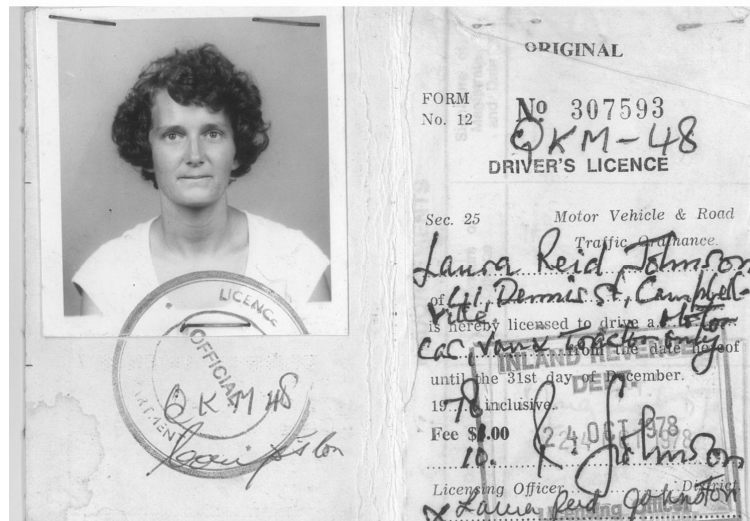 LICENCE
OFFICIAL
QKM 48
ORIGINAL
FORM
No. 12
No 307593
QKM-48
DRIVER'S LICENCE
Sec. 25 Motor Vehicle & Road
Traffic Ordinance.
Laura Reid Johnson
of 41, Dennis St, Campbel-
ville
is hereby licensed to drive a Motor
Car, Van & Tractor only
from the date hereof
INLAND REVENUE
until the 31st day of December.
DEPT.
1978 inclusive.
Fee $1.00 24 OCT 1978
10.
Johnson
Licensing Officer District
x Laura Reid Johnston
Licensing Officer